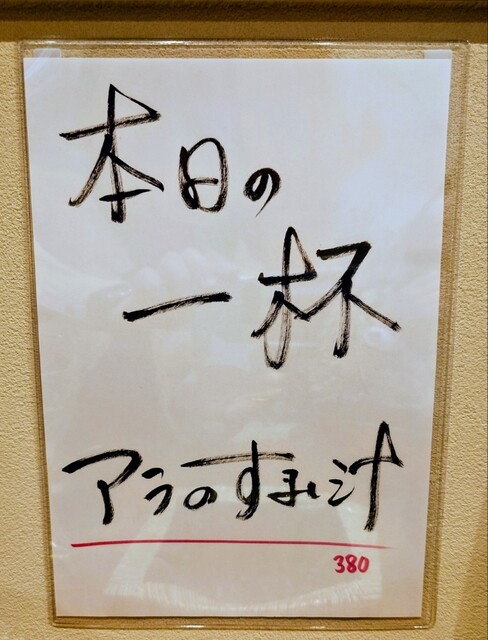 本日の
一杯
アラのすまし汁
380